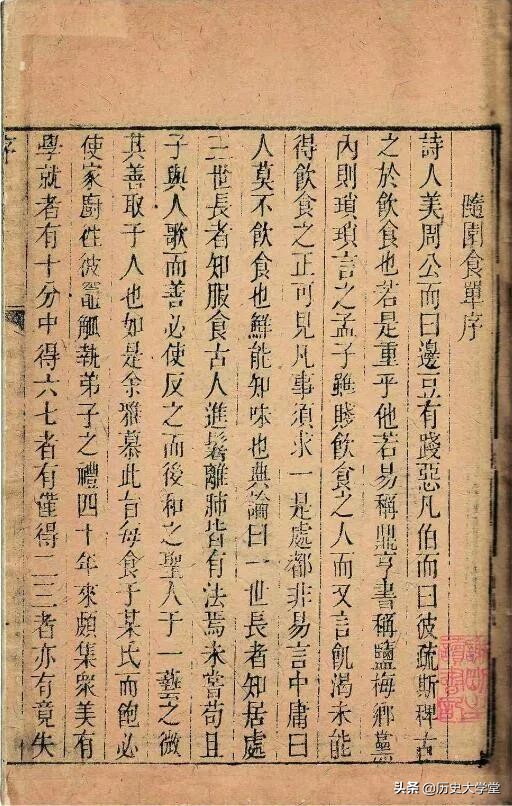 隨園食單序
詩人美周公而曰邊豆有踐惡凡伯而曰彼疏斯稗古
之於飲食也若是重乎他若易稱鼎亨書稱鹽梅鄉黨
內則瑣瑣言之孟子雖賤飲食之人而又言飢渴未能
得飲食之正可見凡事須求一是處都非易言中庸曰
人莫不飲食也鮮能知味也典論曰一世長者知居處
三世長者知服食古人進鬐離肺皆有法焉未嘗苟且
子與人歌而善必使反之而後和之聖人于一藝之微
其善取于人也如是余雅慕此旨每食于某氏而飽必
使家廚往彼竈觚執弟子之禮四十年來頗集眾美有
學就者有十分中得六七者有僅得二三者亦有竟失
序
头条 @历史大学堂